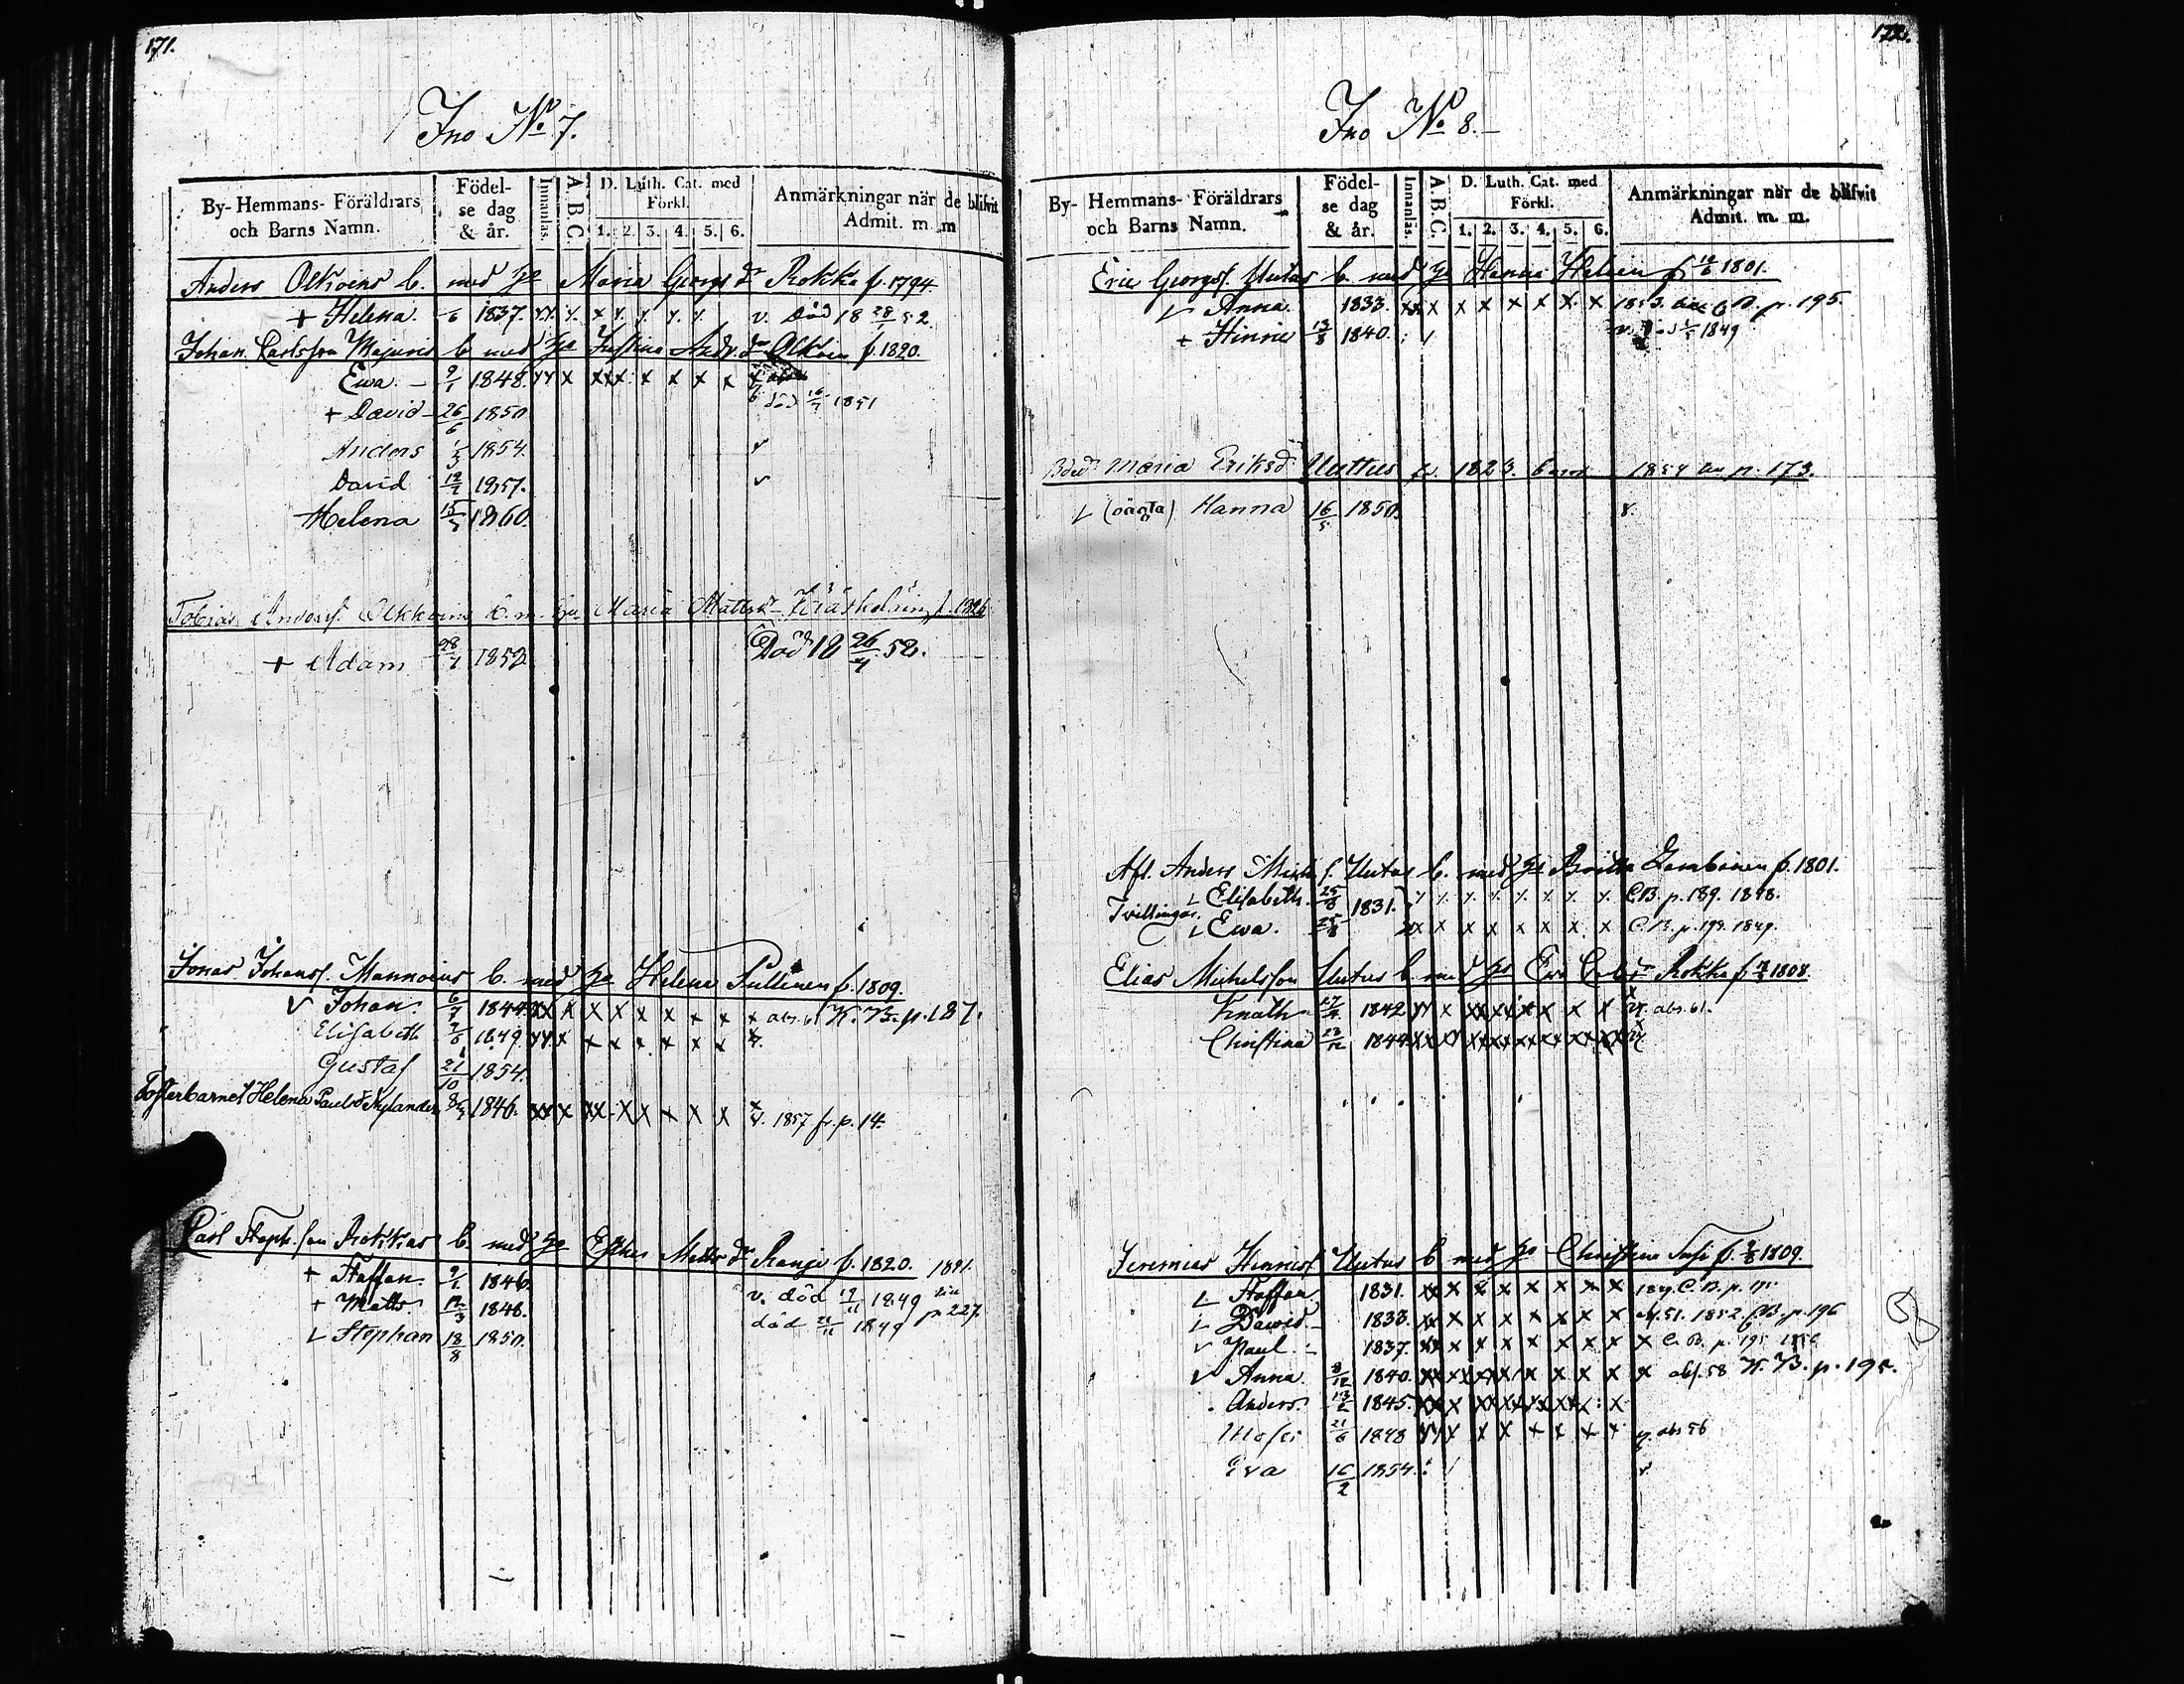 171.
Ino No 7.
By- Hemmans- Föräldrars och Barns Namn.
Födelse dag & år.
Innanläs.
A.B.C.
D. Luth. Cat. med Förkl.
1. 2. 3. 4. 5. 6.
Anmärkningar när de blifvit Admit. m. m
Anders Olkoins b. med Maria Georgs dr Rokka f. 1794.
+ Helena. 1837. v. död 18 28/1 52.
Johan Carlsson Majuris b. med Justina And. dr Olkoin f. 1820.
Ewa. 9/1 1848. x x x x x x
+ David 26/6 1850 död 16/7 1851
Anders 1854. v
David 12/2 1857. v
Helena 15/3 1860.
Tobias Andersf. Olkkoins b. m. Maria Mattsdr f. 1826
+ Adam 28/1 1852 Död 18 26/4 52.
Jonas Johansf. Mannoins b. med Helena Pullinen f. 1809.
v Johan. 6/7 1844. xx x x x x x x x x abs. 61 K. B. p. 187.
Elisabeth 7/6 1849 x x x x x x x
Gustaf 21/10 1854.
Fosterbarnet Helena Paulsd Nylander 1846. xx x xx x x x x x v. 1857 fr. p. 14.
Carl Steph. son Rokkas b. med Esther Matts dr Ranja f. 1820. 1891
+ Staffan. 9/1 1846. v. död 19/11 1849 p. 227.
+ Matts. 12/3 1848. död 21/11 1849
L Stephan 18/8 1850.
172.
Ino No 8.
By- Hemmans- Föräldrars och Barns Namn.
Födelse dag & år.
Innanläs.
A.B.C.
D. Luth. Cat. med Förkl.
1. 2. 3. 4. 5. 6.
Anmärkningar när de blifvit Admit. m. m.
Eric Georgsf. Uutus b. med Hanna f. 1801.
L Anna. 1833. xx x x x x x x x 1853. p. 195.
+ Hinric 13/8 1840. 1849
Maria Eriksd. Uuttus f. 1823. 1854 p. 173.
L (oägta) Hanna 16/5 1850. v.
Afl. Anders Mich. f. Uutus b. med Britta f. 1801.
Tvillingar.
L Elisabeth. 25/8 1831. C.B. p. 189. 1848.
L Ewa. 25/8 xx x x x x x x x C.B. p. 199. 1849.
Elias Michelsson Uutus b. med Eva Rokka f. 1808.
Knath 17/4 1842 abs. 61.
Christina 23/12 1844.
Jeremias Hinricsf. Uutus b. med Christina Susi f. 1809.
L Staffan 1831. xx x x x x x x x C.B. p.
L Dawid 1833. xx x x x x x x x abs. 51. 1852. C.B. p. 196
v Paul. 1837. xx x x x x x x x x C. B. p. 195
v Anna. 8/12 1840. abs. 58 K. B. p.
Anders 13/2 1845.
Moses 21/6 1848 abs 56
Eva 16/2 1854. v